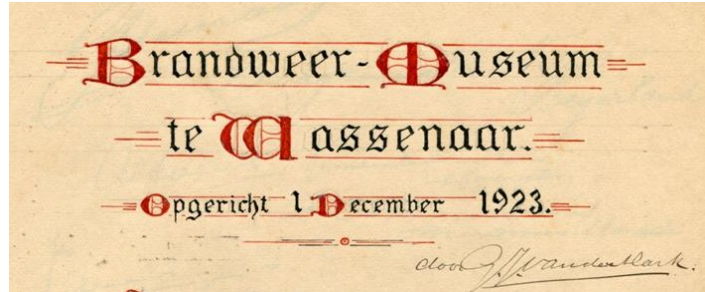 Brandweer-Museum
te Wassenaar.
Opgericht 1 December 1923.
door J.J. van der Mark.